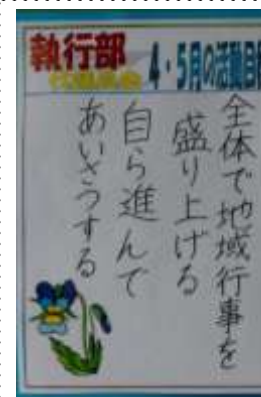 執行部
4・5月の活動目標
全体で地域行事を
盛り上げる
自ら進んで
あいさつする